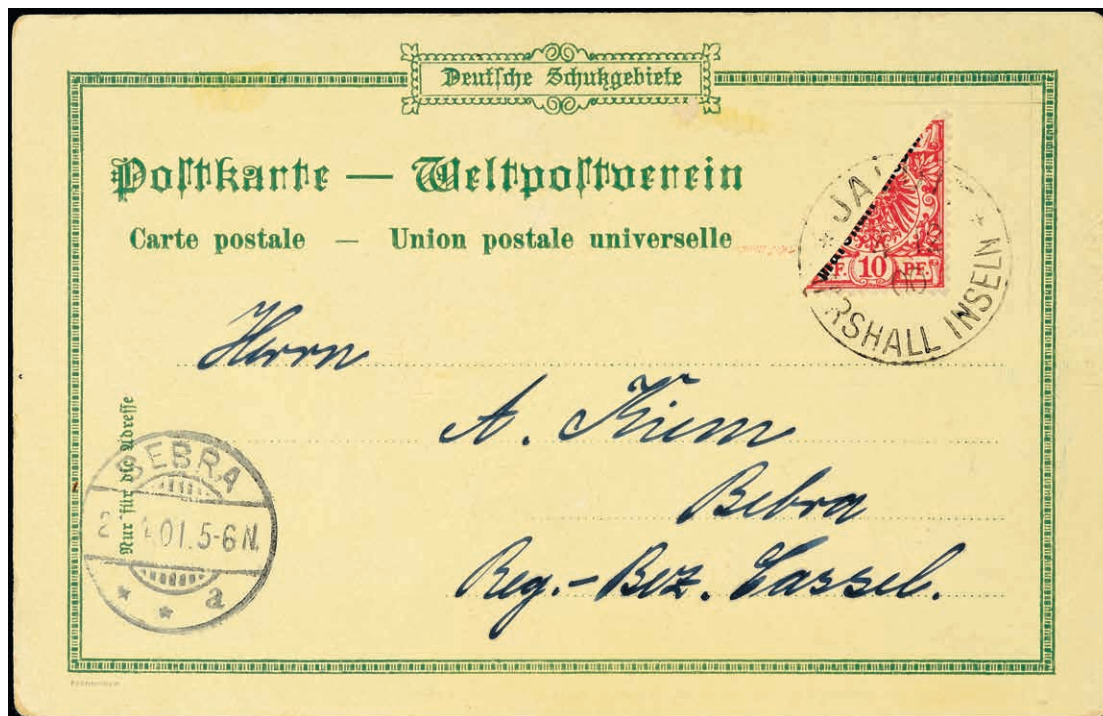 Deutsche Schutzgebiete
Postkarte — Weltpostverein
Carte postale — Union postale universelle
10 PF.
MARSHALL INSELN
Herrn
A. Kiem
Bebra
Reg.-Bez. Cassel.
Nur für die Adresse
BEBRA
01. 5-6 N.
* * a